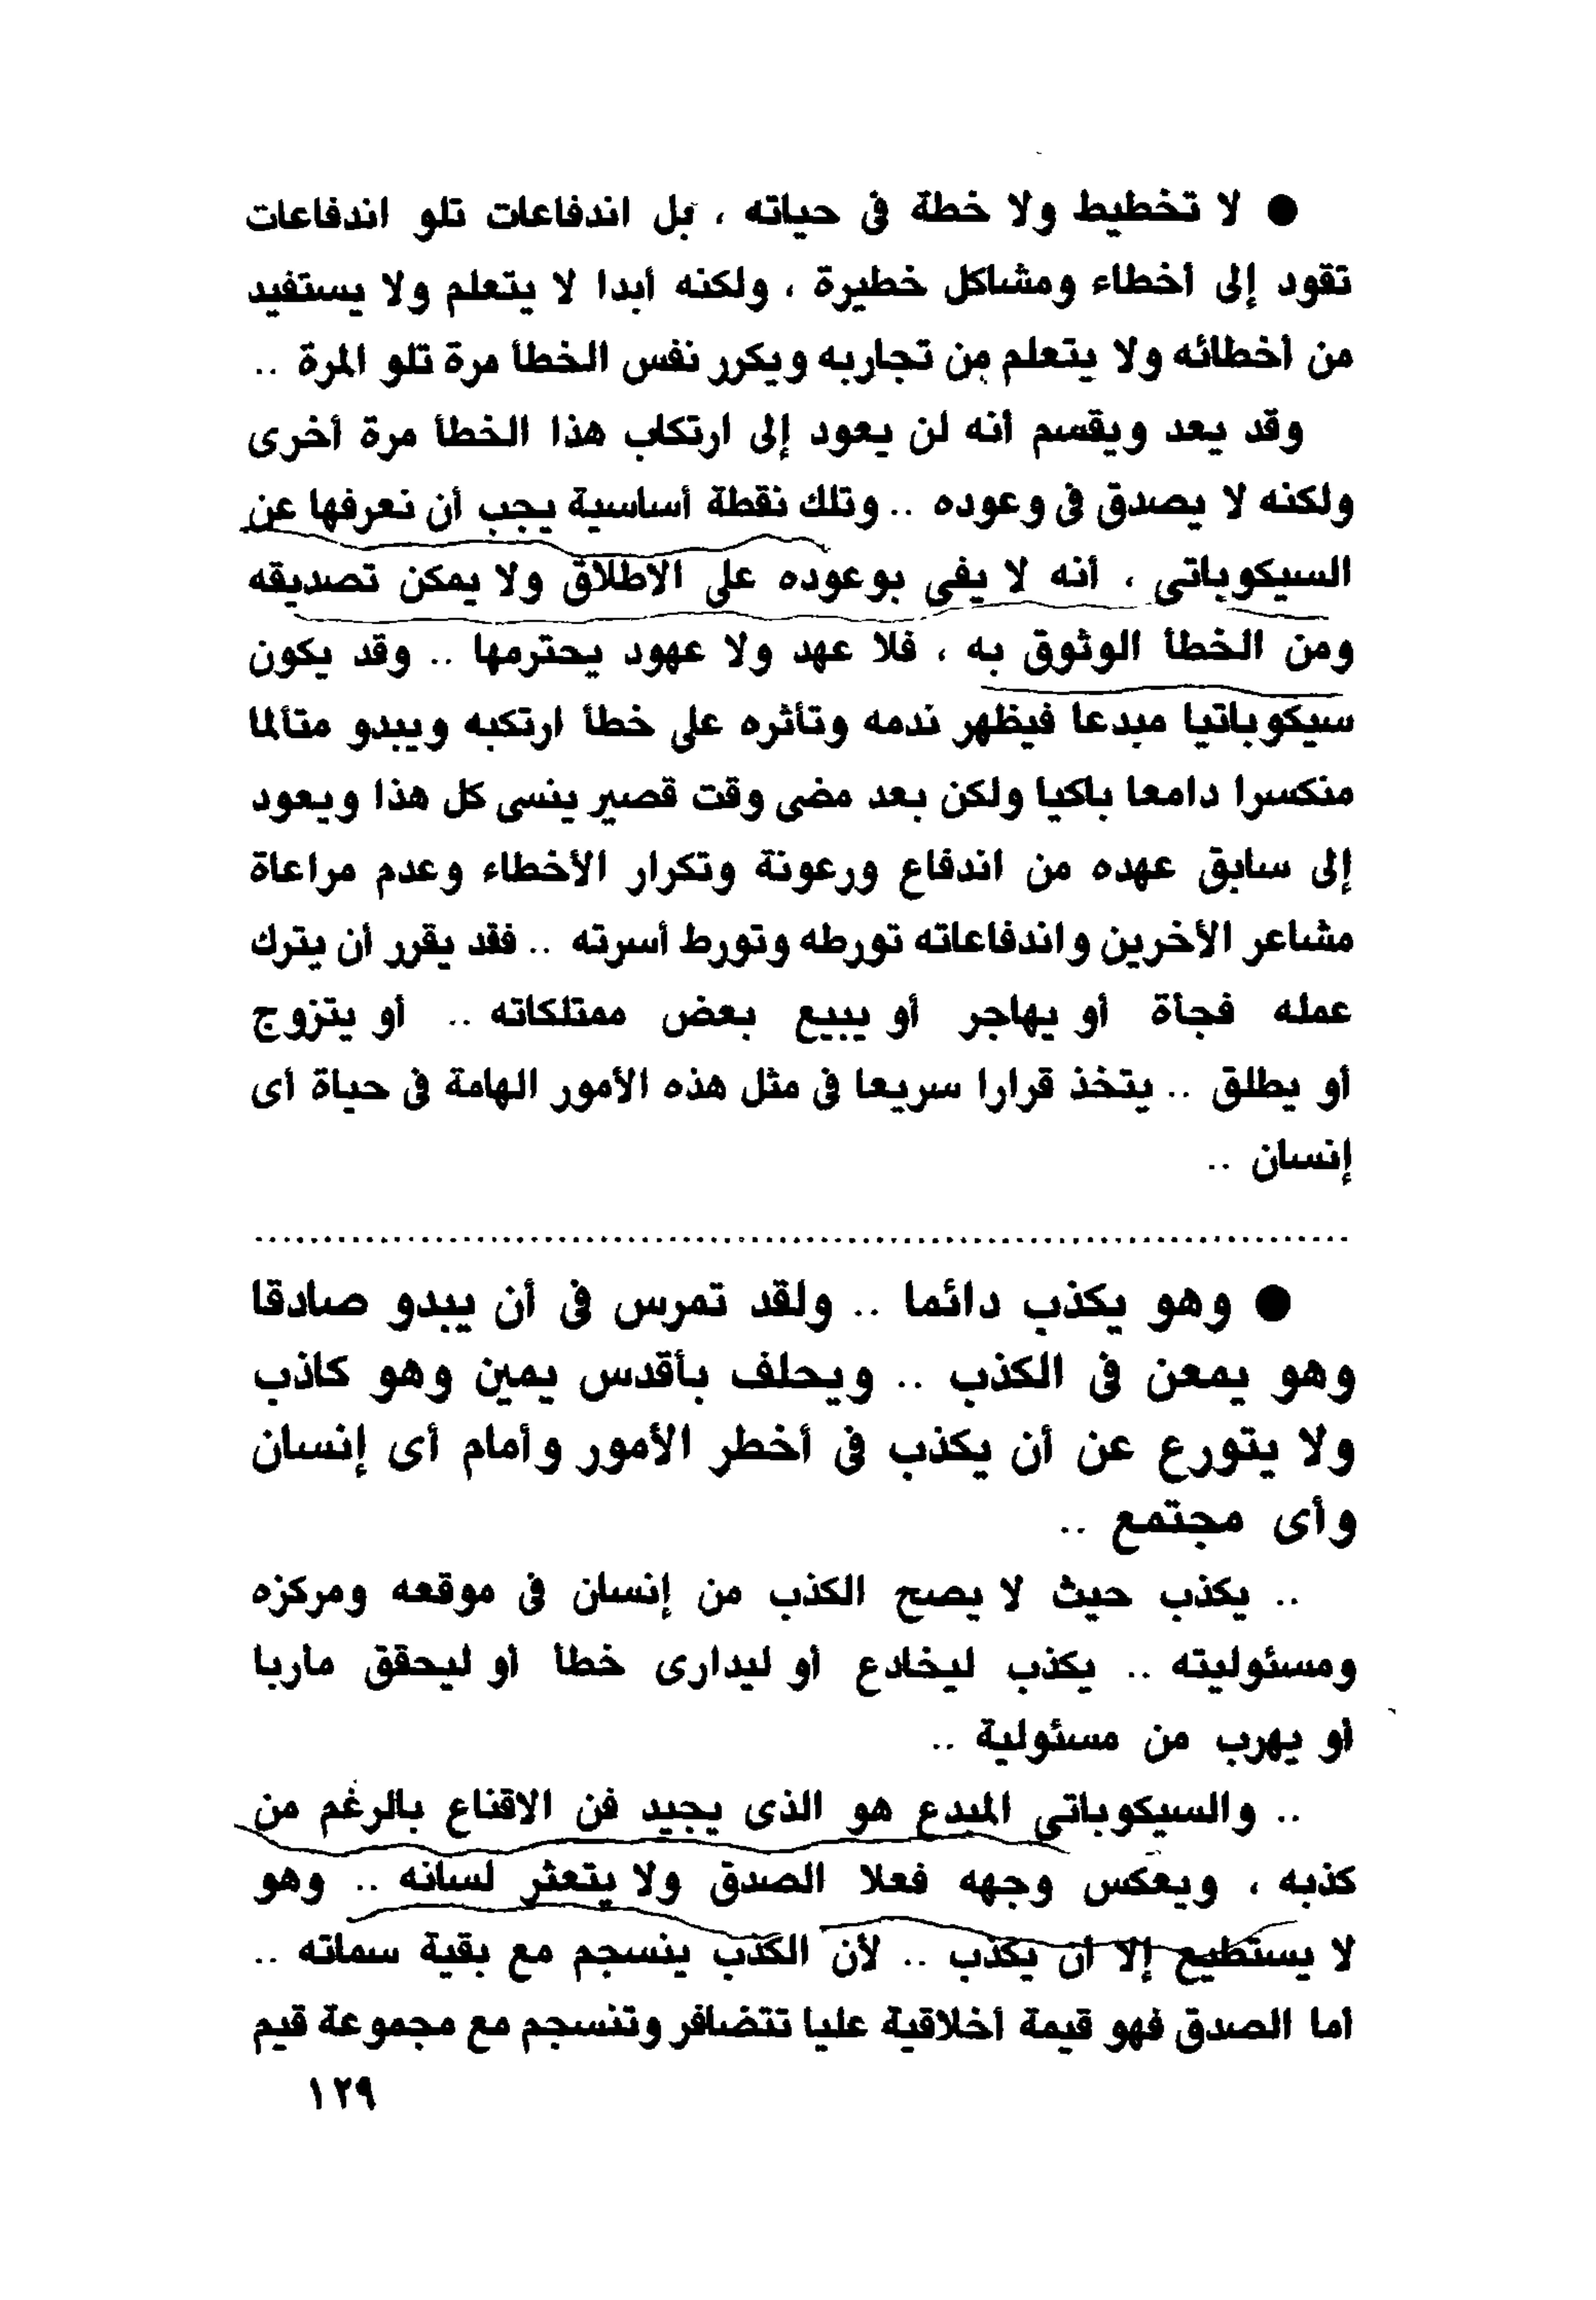 ● لا تخطيط ولا خطة فى حياته ، بل اندفاعات تلو اندفاعات
تقود إلى أخطاء ومشاكل خطيرة ، ولكنه أبدا لا يتعلم ولا يستفيد
من أخطائه ولا يتعلم من تجاربه ويكرر نفس الخطأ مرة تلو المرة ..
وقد يعد ويقسم أنه لن يعود إلى ارتكاب هذا الخطأ مرة أخرى
ولكنه لا يصدق فى وعوده .. وتلك نقطة أساسية يجب أن نعرفها عن
السيكوباتى ، أنه لا يفى بوعوده على الاطلاق ولا يمكن تصديقه
ومن الخطأ الوثوق به ، فلا عهد ولا عهود يحترمها .. وقد يكون
سيكوباتيا مبدعا فيظهر ندمه وتأثره على خطأ ارتكبه ويبدو متألما
منكسرا دامعا باكيا ولكن بعد مضى وقت قصير ينسى كل هذا ويعود
إلى سابق عهده من اندفاع ورعونة وتكرار الأخطاء وعدم مراعاة
مشاعر الأخرين واندفاعاته تورطه وتورط أسرته .. فقد يقرر أن يترك
عمله فجأة أو يهاجر أو يبيع بعض ممتلكاته .. أو يتزوج
أو يطلق .. يتخذ قرارا سريعا فى مثل هذه الأمور الهامة فى حياة أى
إنسان ..
● وهو يكذب دائما .. ولقد تمرس فى أن يبدو صادقا
وهو يمعن فى الكذب .. ويحلف بأقدس يمين وهو كاذب
ولا يتورع عن أن يكذب فى أخطر الأمور وأمام أى إنسان
وأى مجتمع ..
.. يكذب حيث لا يصح الكذب من إنسان فى موقعه ومركزه
ومسئوليته .. يكذب ليخادع أو ليدارى خطأ أو ليحقق ماربا
أو يهرب من مسئولية ..
.. والسيكوباتى المبدع هو الذى يجيد فن الاقناع بالرغم من
كذبه ، ويعكس وجهه فعلا الصدق ولا يتعثر لسانه .. وهو
لا يستطيع إلا أن يكذب .. لأن الكذب ينسجم مع بقية سماته ..
أما الصدق فهو قيمة أخلاقية عليا تتضافر وتنسجم مع مجموعة قيم
١٢٩